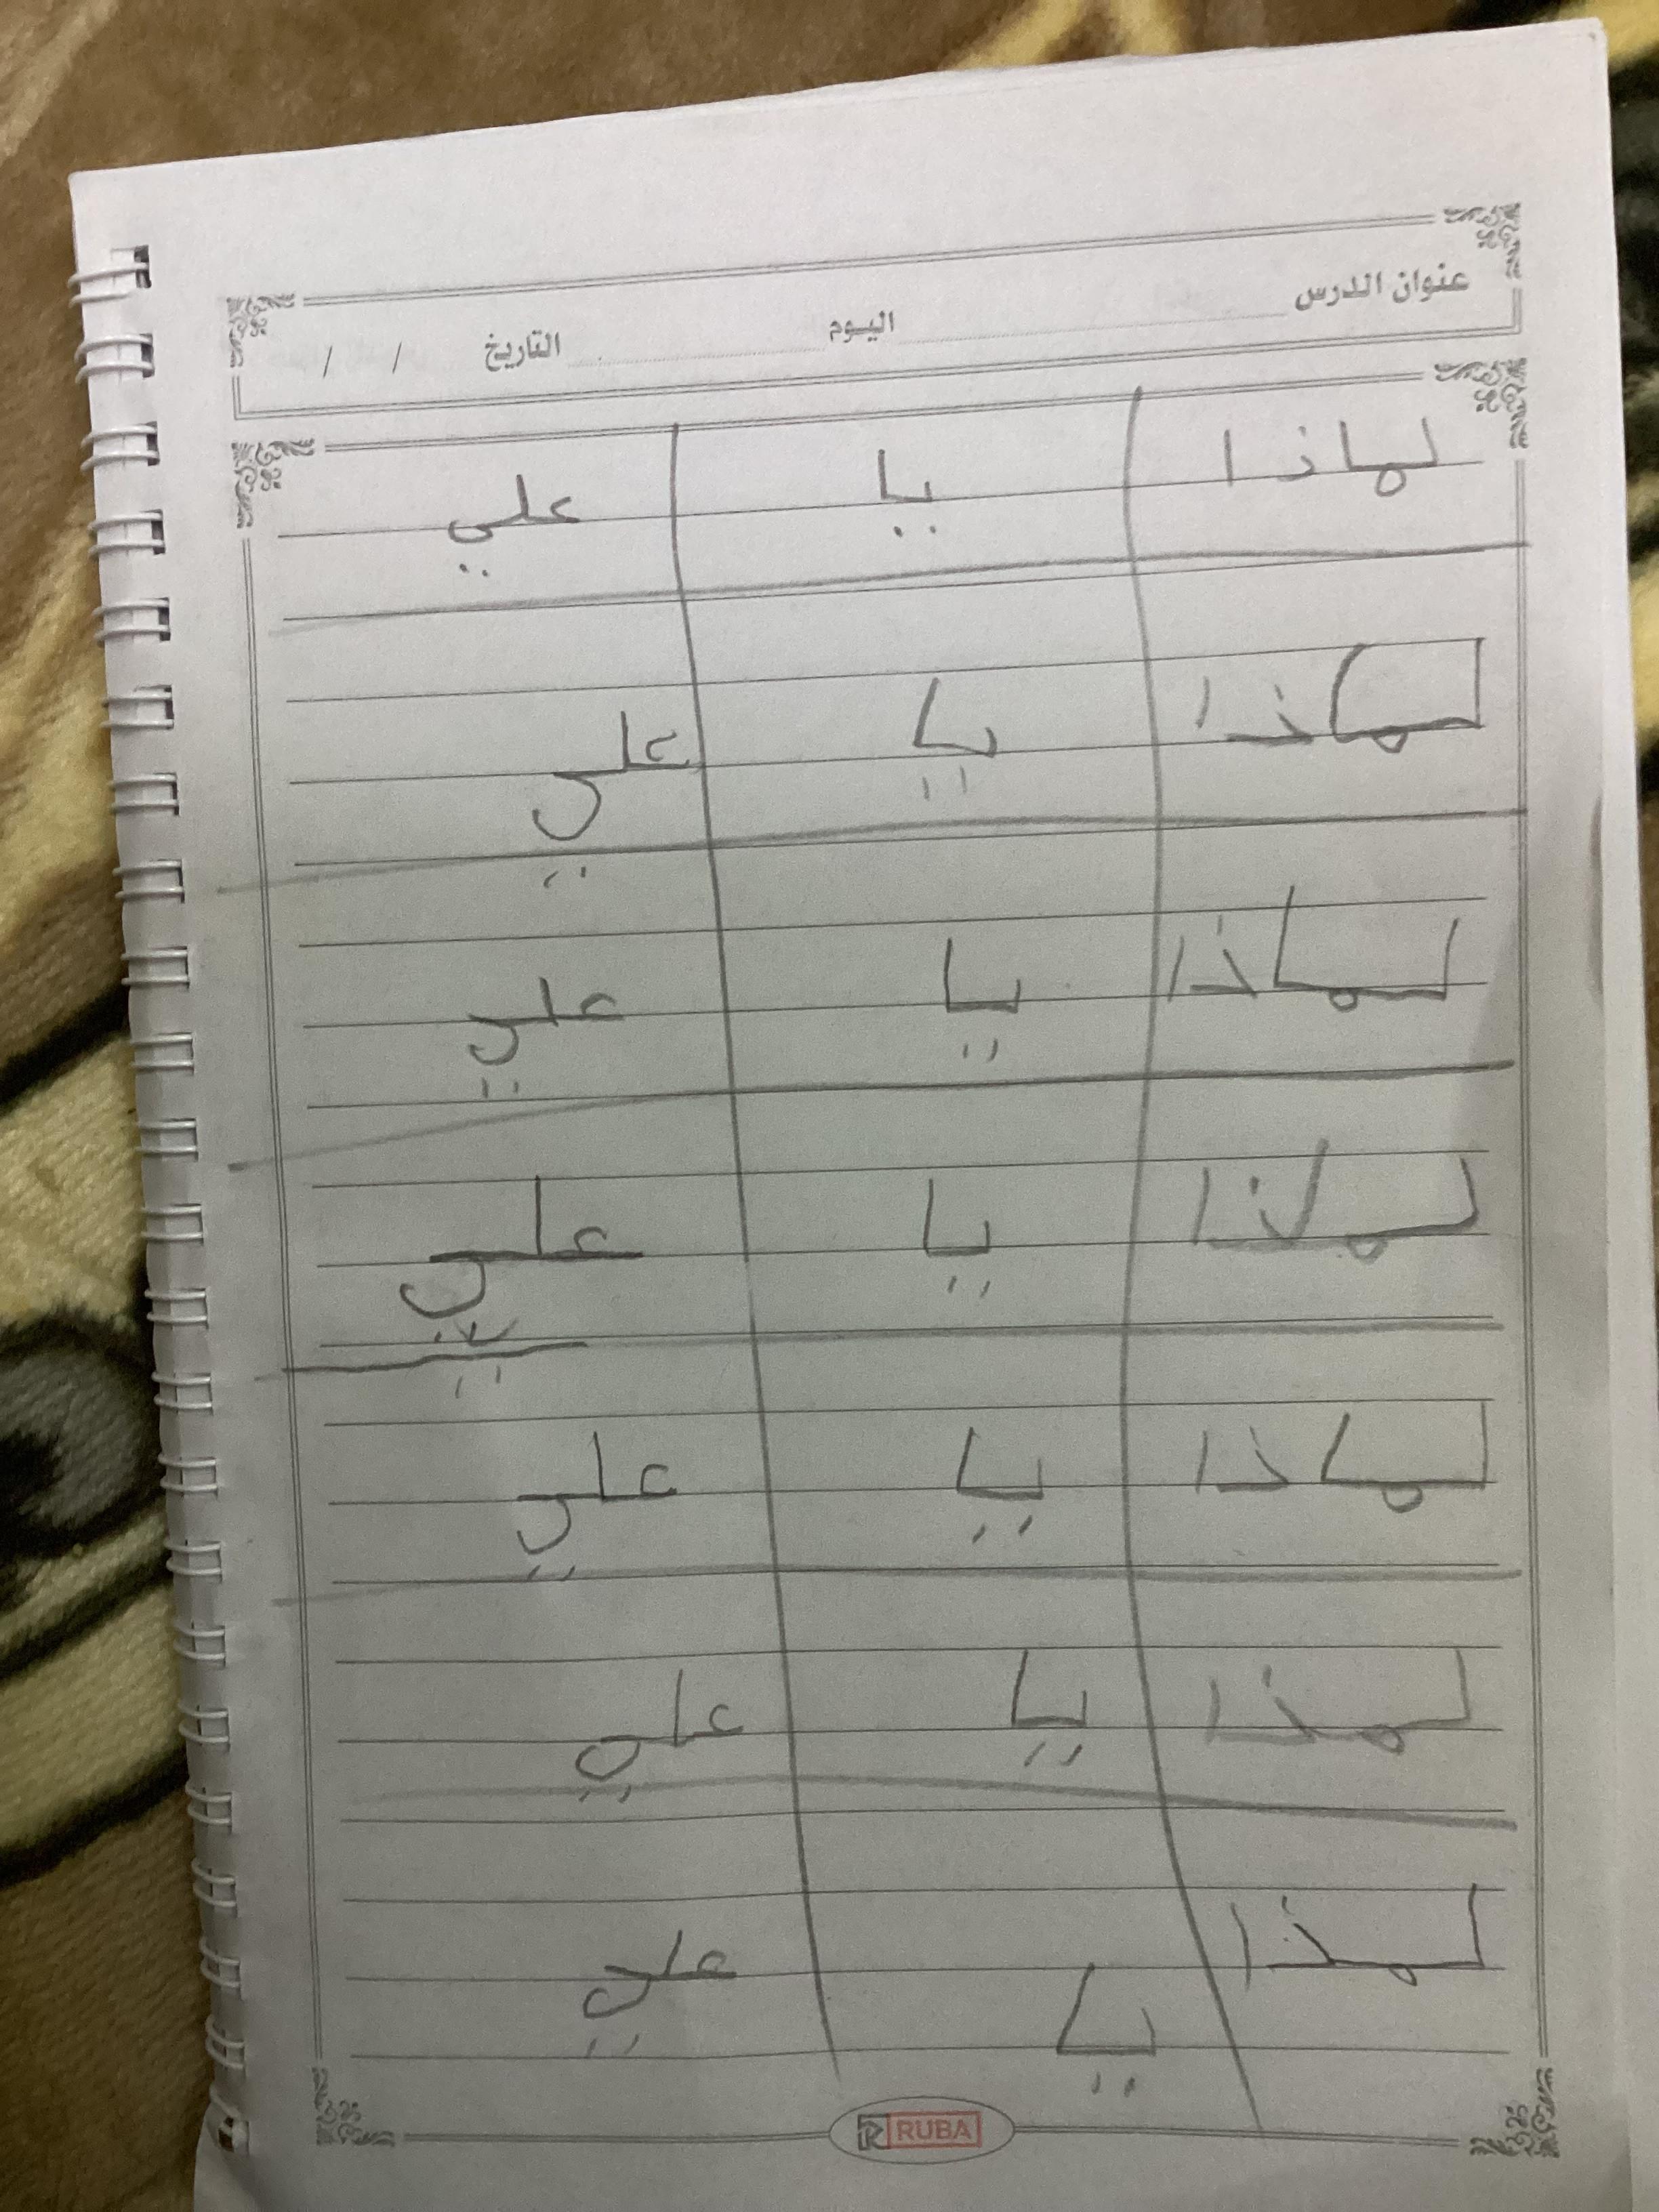 عنوان الدرس اليوم التاريخ / /
لماذا يا علي
لماذا يا علي
لماذا يا علي
لماذا يا علي
لماذا يا علي
لمذا يا علي
لمذا يا علي
RUBA